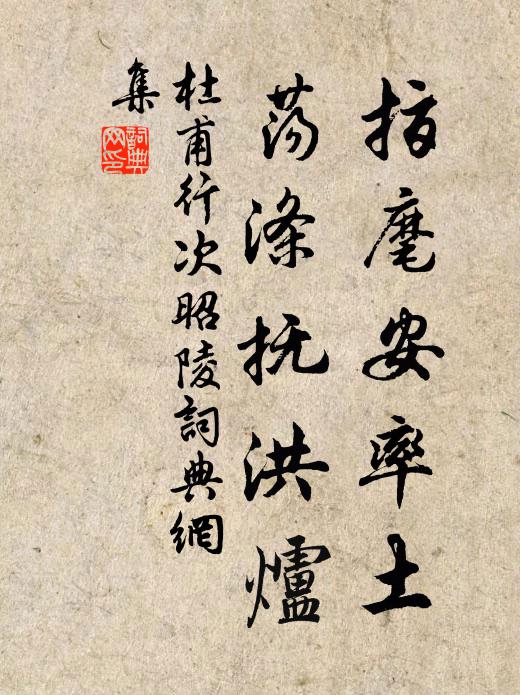 指麾安率土
荡涤抚洪爐
杜甫行次昭陵詞典網
集
詞典
网印